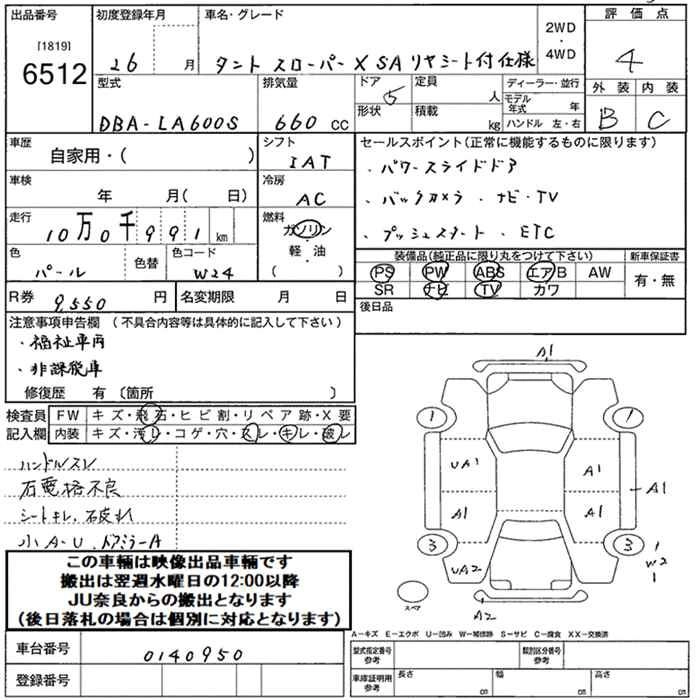 出品番号
[1819]
6512
初度登録年月
26 月
車名・グレード
タント スローパー X SA リヤシート付仕様
2WD
・
4WD
評価点
4
外装 内装
B C
型式
DBA-LA600S
排気量
660 cc
ドア 5
形状
定員 人
積載 kg
ディーラー・並行
モデル年式 年
ハンドル 左・右
車歴
自家用・( )
車検
年 月( 日)
走行
10万0千991 km
色
パール
色替
色コード
W24
シフト
IAT
冷房
AC
燃料
ガソリン
・
軽・油
( )
セールスポイント(正常に機能するものに限ります)
・パワースライドドア
・バックカメラ ・ナビ・TV
・プッシュスタート ・ETC
装備品(純正品に限り丸をつけて下さい)
PS PW ABS エアB AW
SR ナビ TV カワ
新車保証書
有・無
R券 9,550 円
名変期限 月 日
後日品
注意事項申告欄 (不具合内容等は具体的に記入して下さい)
・福祉車両
・非課税車
修復歴 有 〔箇所 〕
検査員記入欄
FW キズ・飛石・ヒビ割・リペア跡・X要
内装 キズ・汚レ・コゲ・穴・スレ・キレ・破レ
ハンドルスレ
シートキレ、破れ
小A-U、ドアミラーA
この車輛は映像出品車輛です
搬出は翌週水曜日の12:00以降
JU奈良からの搬出となります
(後日落札の場合は個別に対応となります)
車台番号 0140950
登録番号
A1
1 1
UA1 A1
A1 A1 A1
3 3
UA2 W
A2
スペア
A-キズ E-エクボ U-凹み W-補修跡 S-サビ C-腐食 XX-交換済
型式指定番号 参考
類別区分番号 参考
車庫証明用 参考
長さ cm
幅 cm
高さ cm